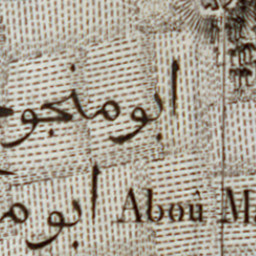 ابو منجو
ابو م
Aboû M